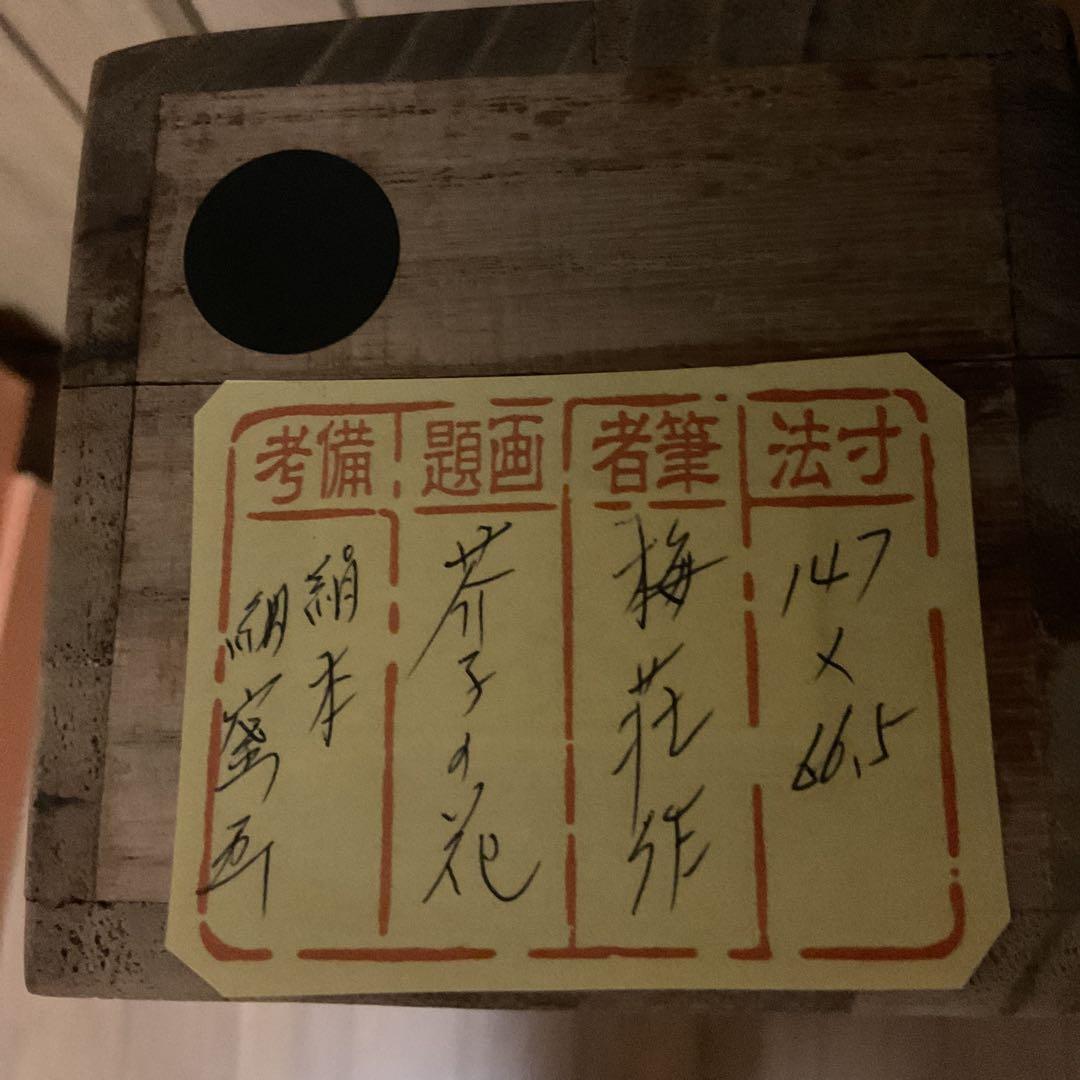 寸法
147
×
66.5
筆者
梅荘作
画題
芥子の花
備考
絹本
細密画